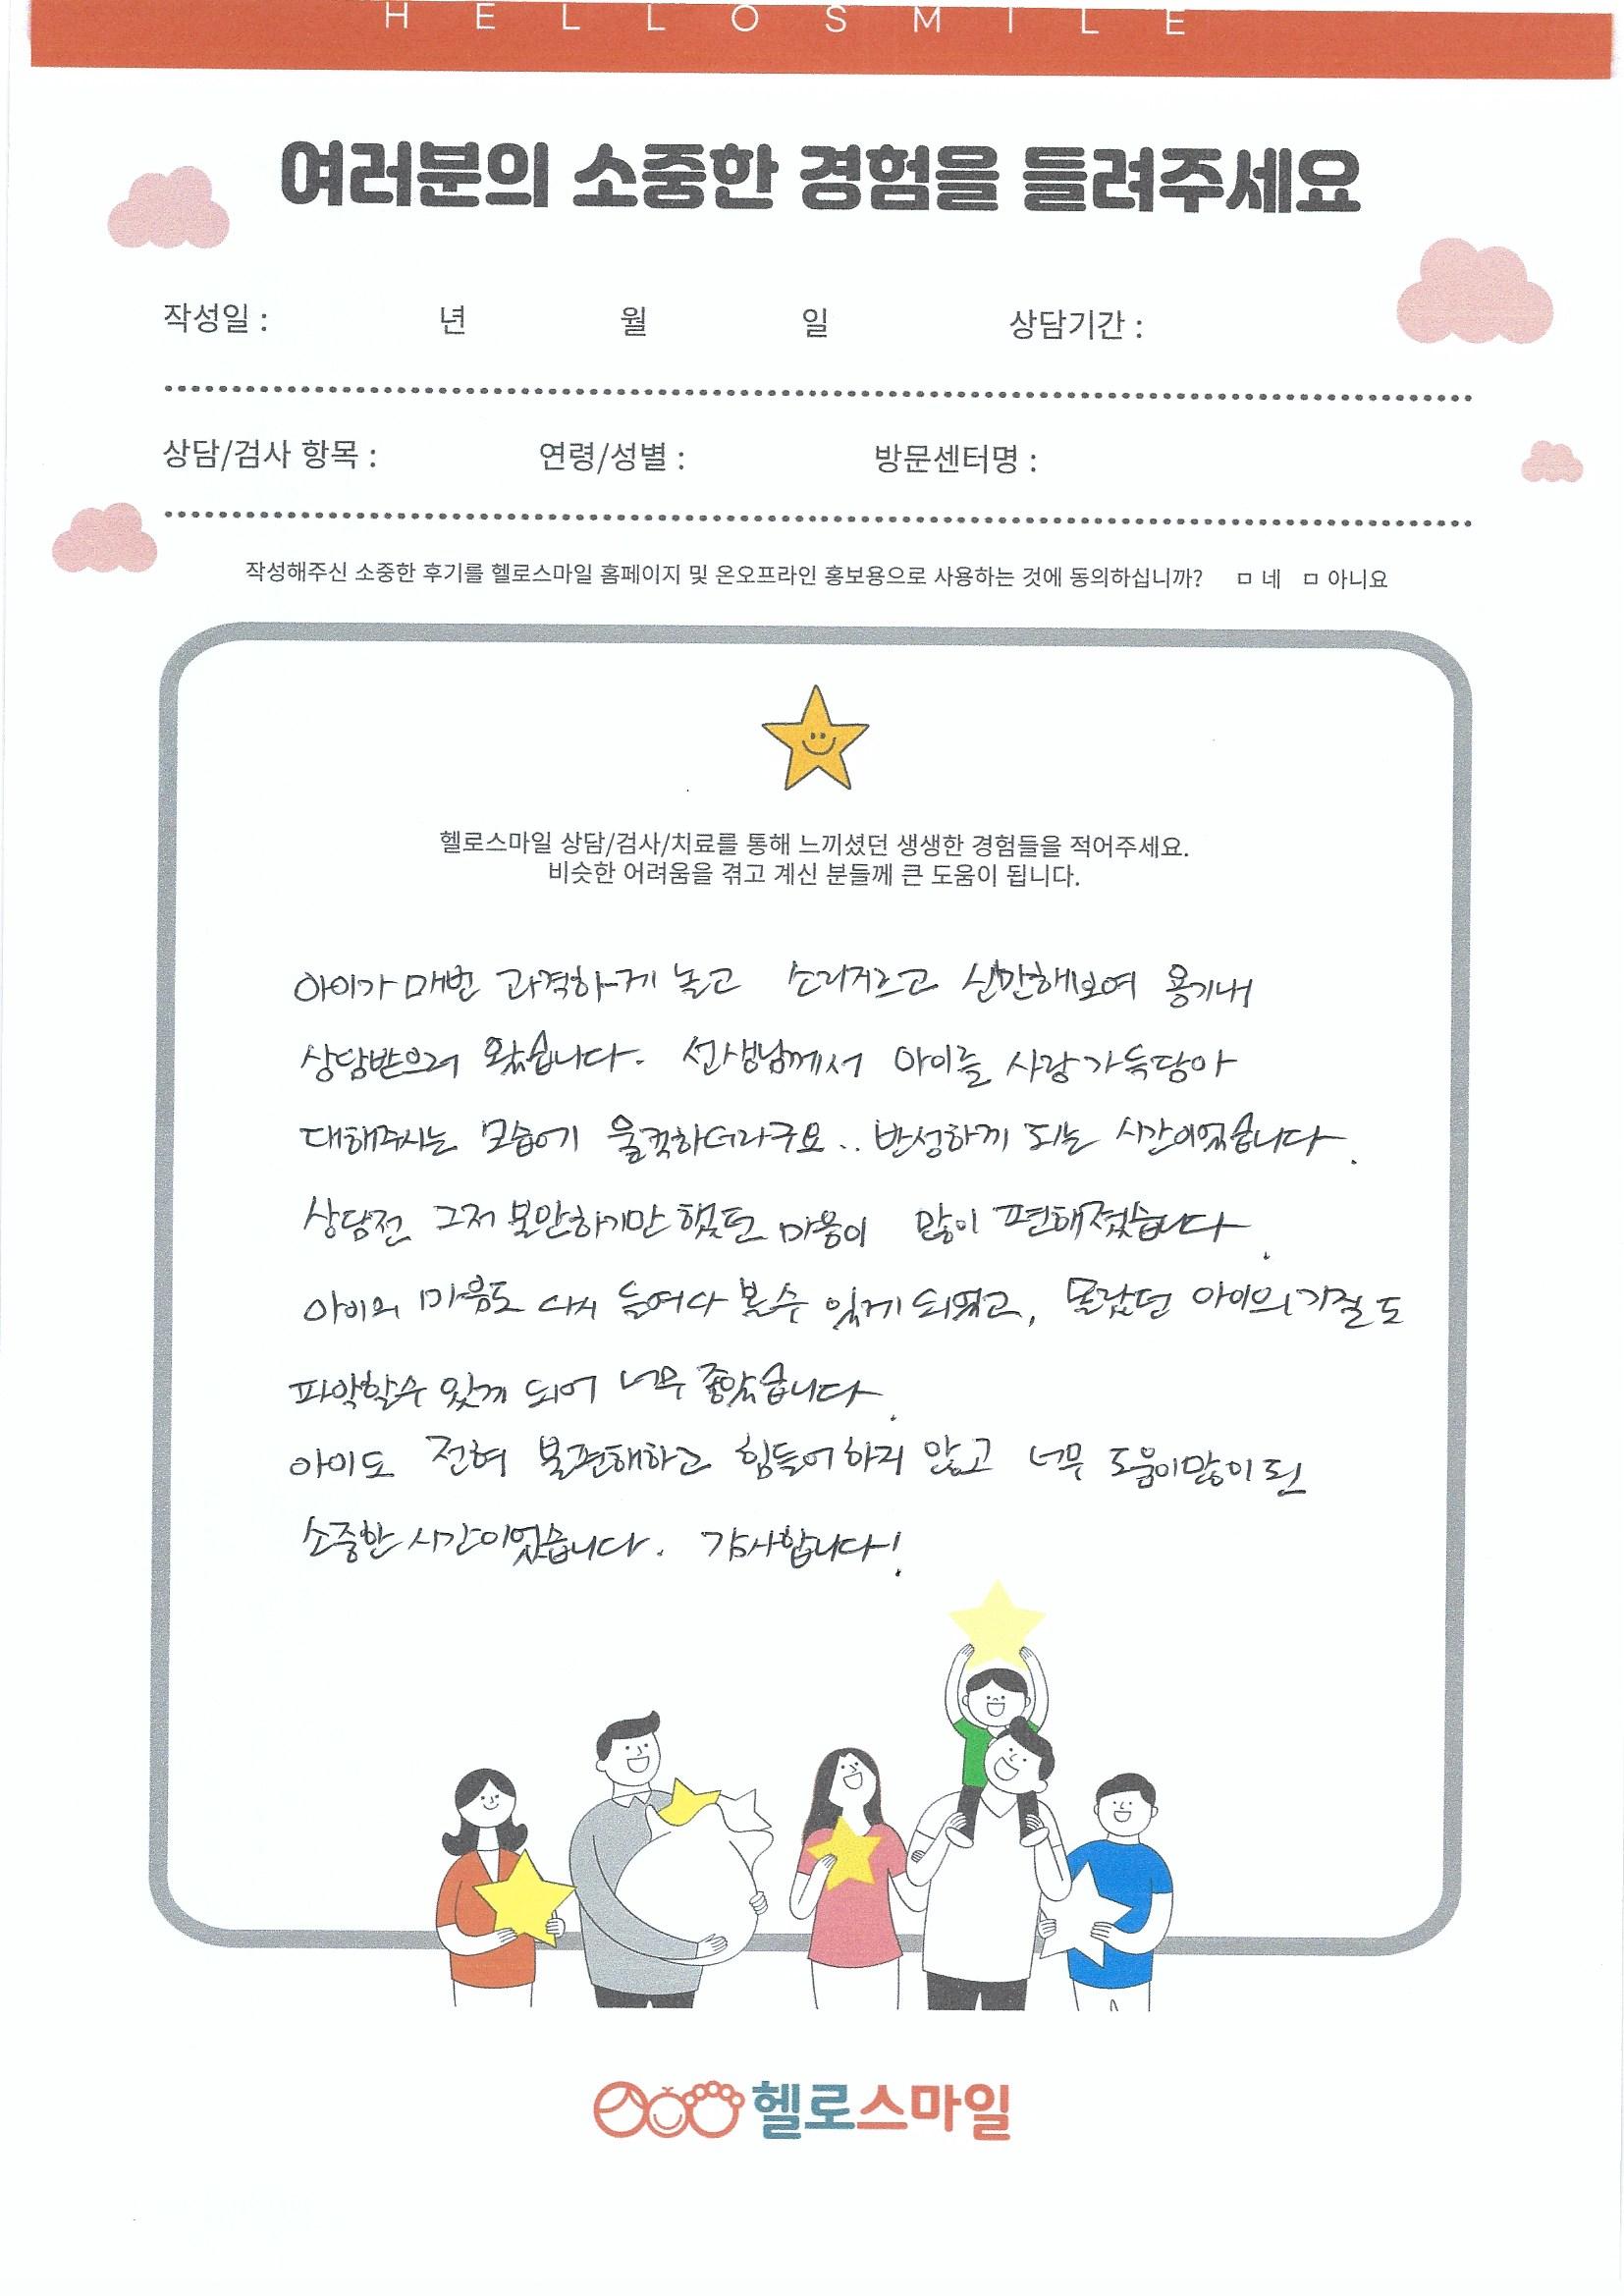 HELLOSMILE
여러분의 소중한 경험을 들려주세요
작성일 : 년 월 일 상담기간 :
상담/검사 항목 : 연령/성별 : 방문센터명 :
작성해주신 소중한 후기를 헬로스마일 홈페이지 및 온오프라인 홍보용으로 사용하는 것에 동의하십니까? ㅁ 네 ㅁ 아니요
헬로스마일 상담/검사/치료를 통해 느끼셨던 생생한 경험들을 적어주세요.
비슷한 어려움을 겪고 계신 분들께 큰 도움이 됩니다.
아이가 매번 과격하게 놀고 소리지르고 산만해보여 용기내
상담받으러 왔습니다. 선생님께서 아이를 사랑가득담아
대해주시는 모습에 울컥하더라구요.. 반성하게 되는 시간이었습니다.
상담전 그저 불안하기만 했던 마음이 많이 편해졌습니다.
아이의 마음도 다시 들여다 볼수 있게 되었고, 몰랐던 아이의 기질도
파악할수 있게 되어 너무 좋았습니다.
아이도 전혀 불편해하고 힘들어하지 않고 너무 도움이많이 된
소중한 시간이었습니다. 감사합니다!
헬로스마일